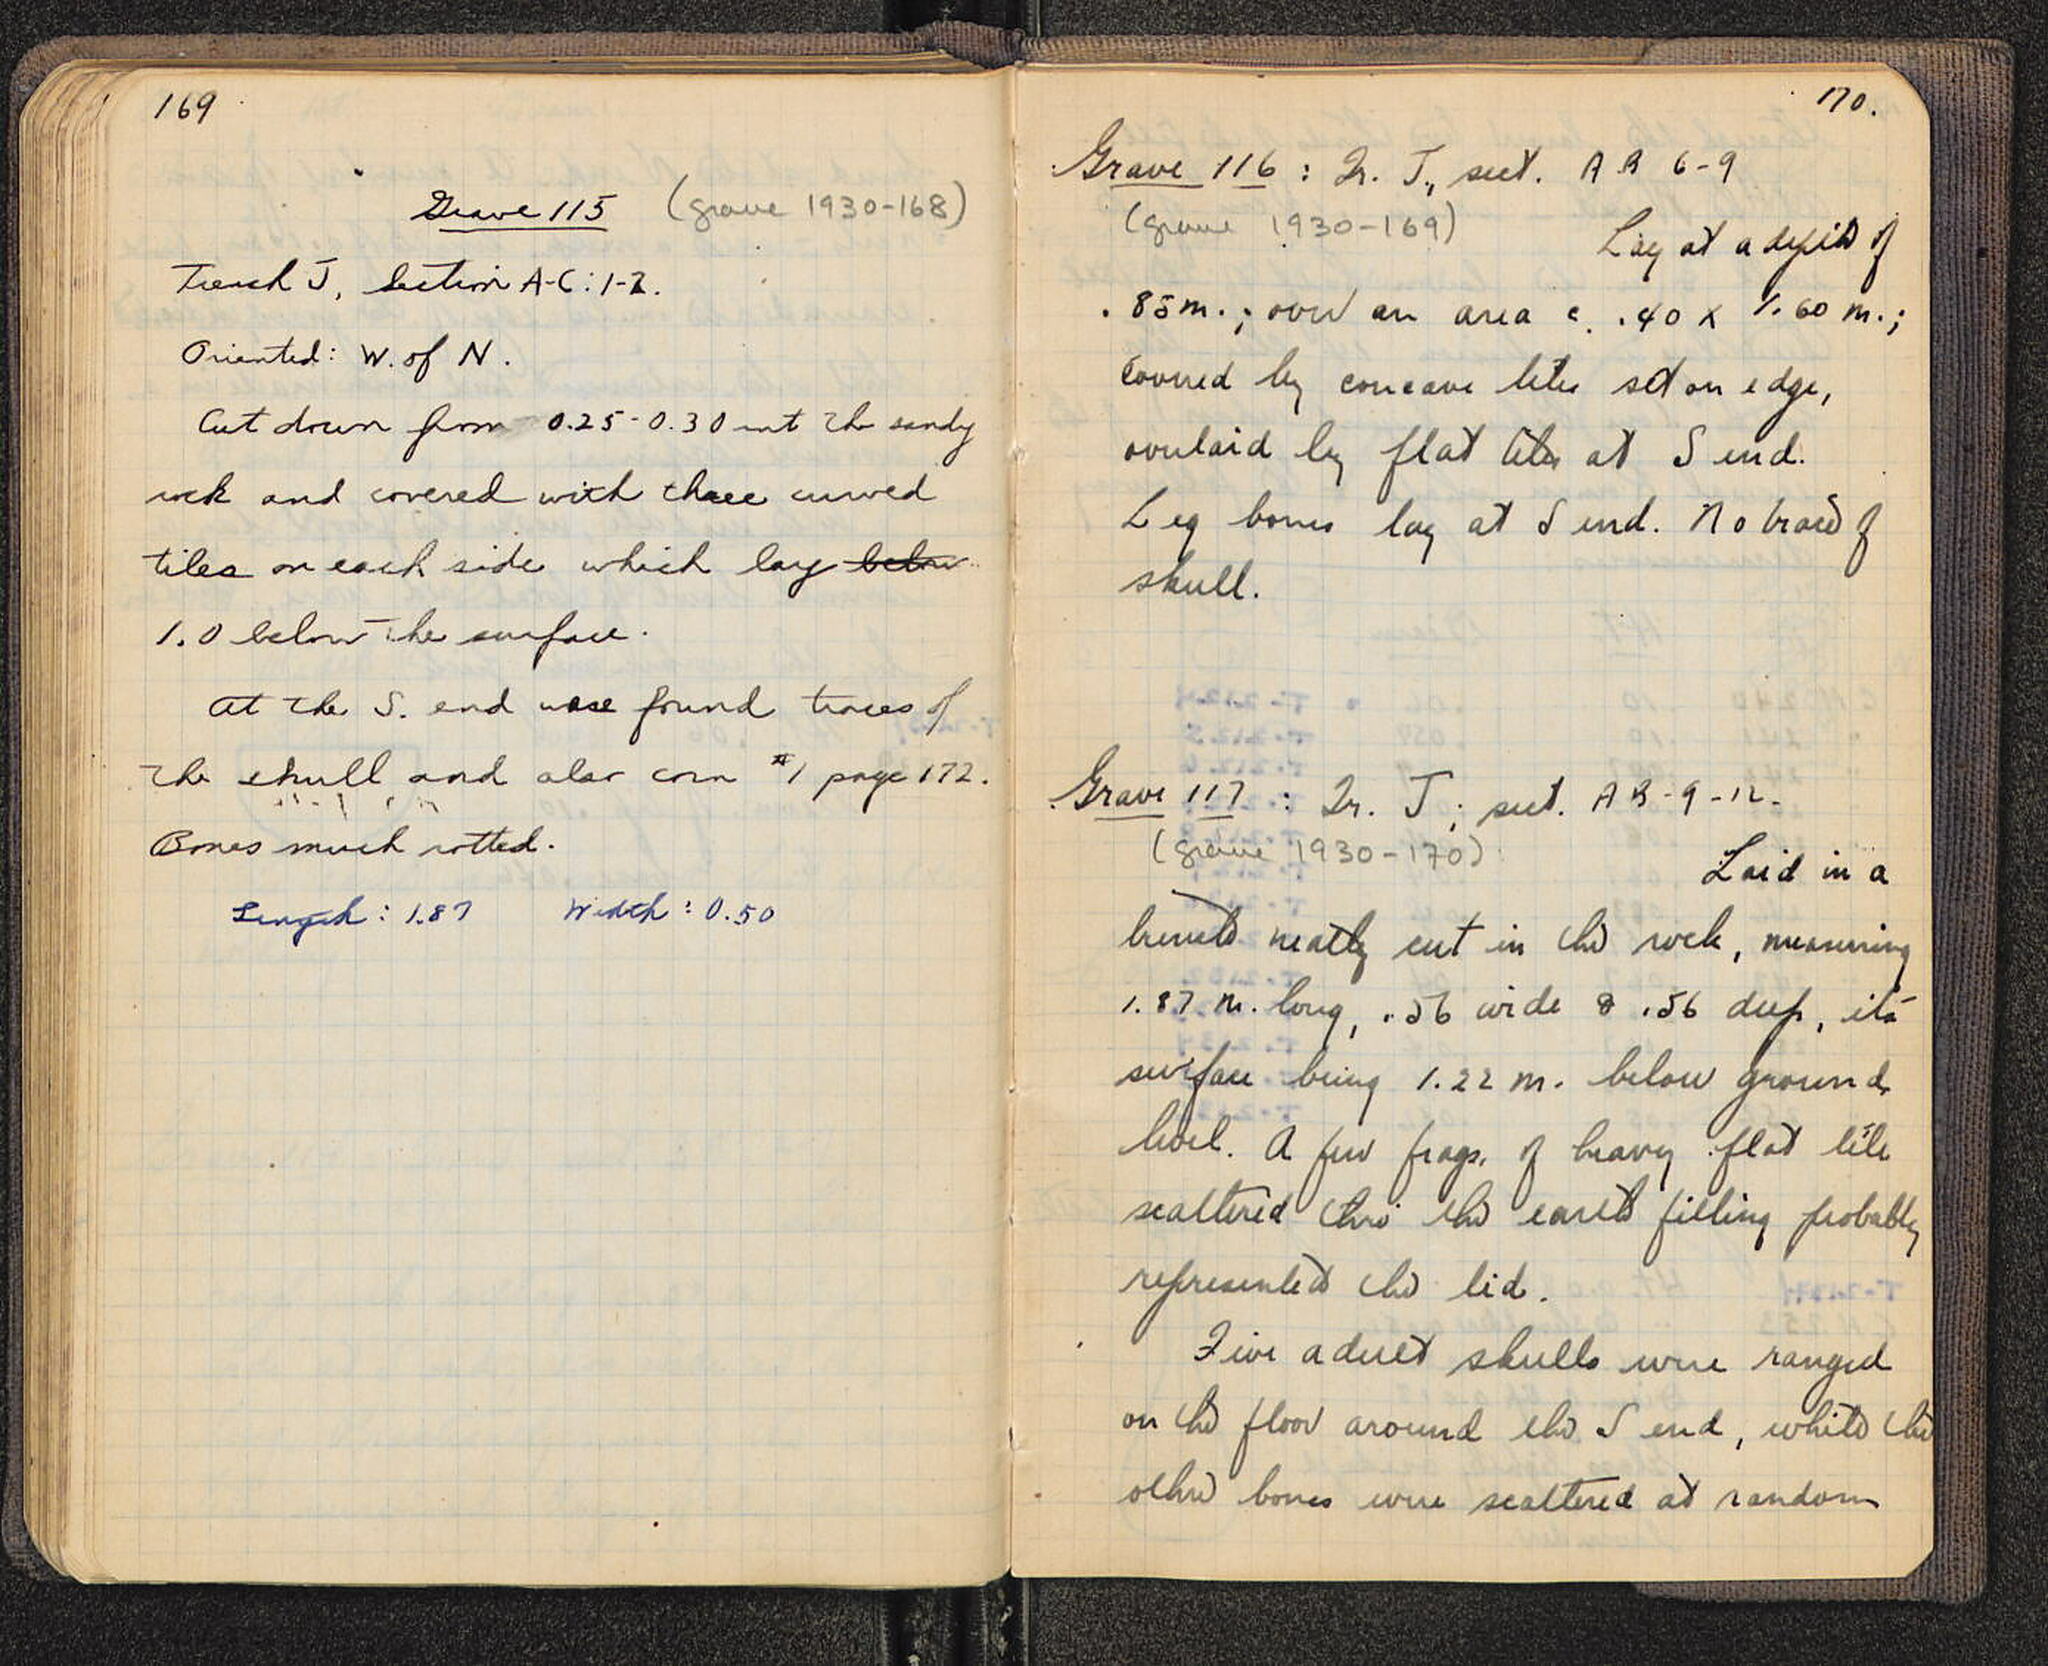 169
Grave 115 (grave 1930-168)
Trench J, Section A-C: 1-2.
Oriented: W. of N.
Cut down from 0.25-0.30 int the sandy
rock and covered with three curved
tiles on each side which lay below
1.0 below the surface.
At the S. end were found traces of
the skull and also coin #1 page 172.
Bones much rotted.
Length: 1.87 Width: 0.50
170.
Grave 116: Tr. J., sect. A B 6-9
(grave 1930-169)
Lay at a depth of
.85 m.; over an area c. .40 x 1.60 m.;
covered by concave tiles set on edge,
overlaid by flat tiles at S end.
Leg bones lay at S end. No trace of
skull.
Grave 117: Tr. J; sect. A B-9-12-
(grave 1930-170)
Laid in a
trench neatly cut in the rock, measuring
1.87 m. long, .56 wide & .56 deep, its
surface being 1.22 m. below ground
level. A few frags. of heavy flat tile
scattered thro' the earth filling probably
represented the lid.
Five adult skulls were ranged
on the floor around the S end, while the
other bones were scattered at random